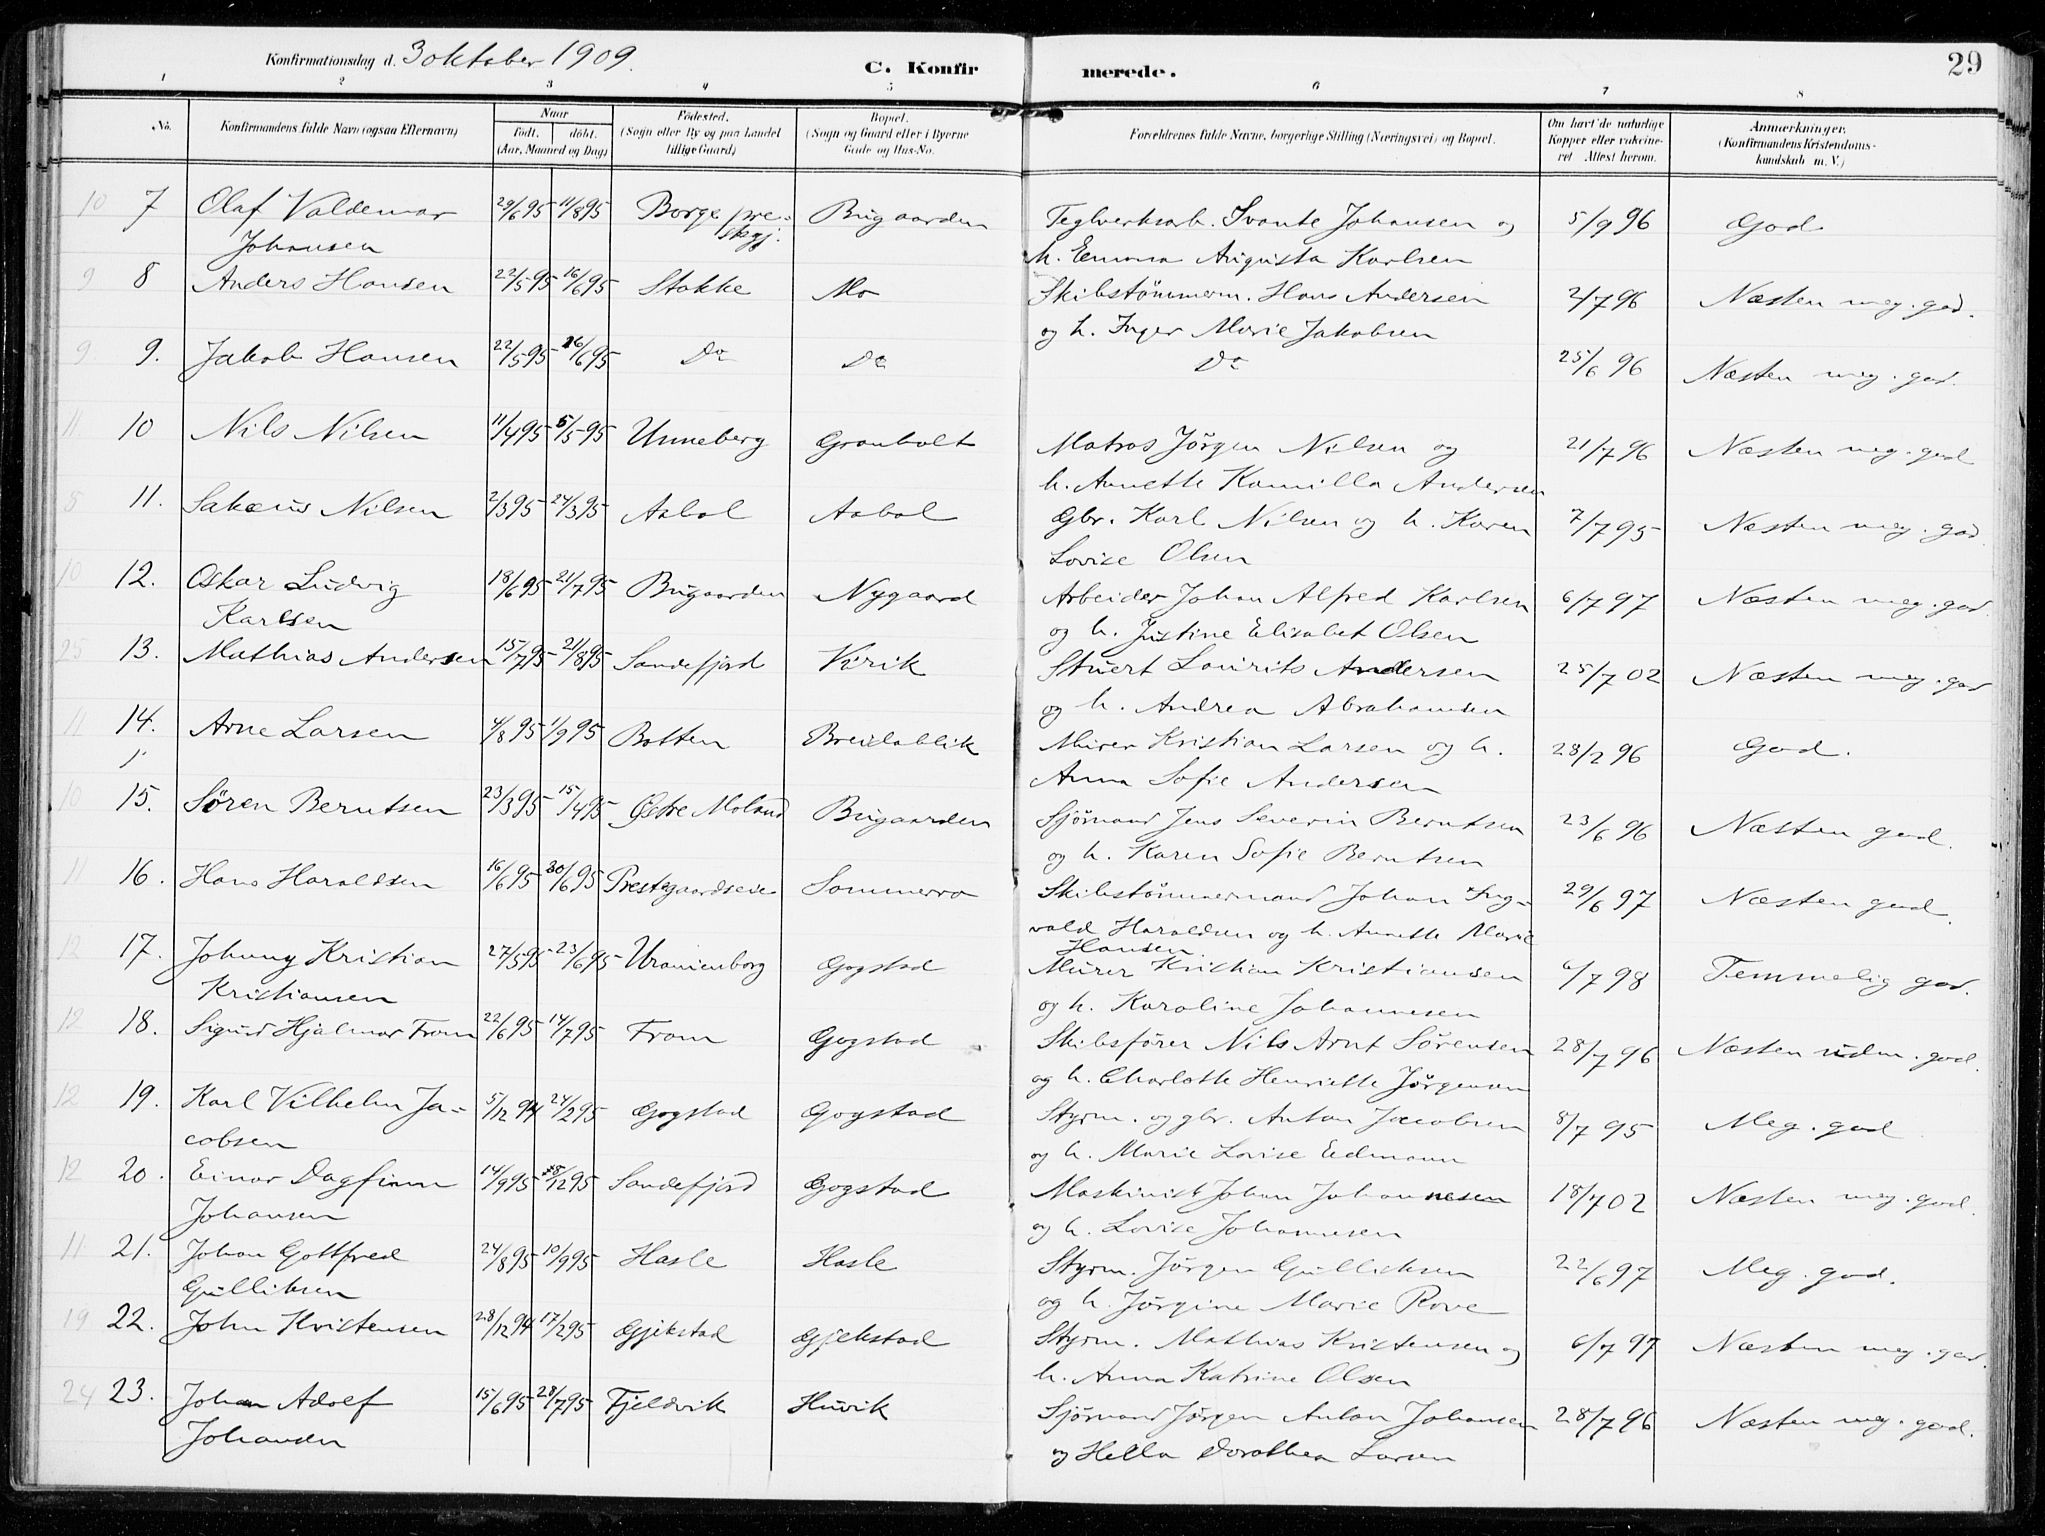 Konfirmationsdag d. 3 oktober 1909.
C. Konfirmerede.
29
1 2 3 4 5 6 7 8
No. Konfirmandens fulde Navn (ogsaa Efternavn) Naar født. døbt. (Aar, Maaned og Dag) Fødested. (Sogn eller By og paa Landet tillige Gaard) Bopæl. (Sogn og Gaard eller i Byerne Gade og Hus-No. Forældrenes fulde Navne, borgerlige Stilling (Næringsvei) og Bopæl. Om havt de naturlige Kopper eller vakcineret Attest herom. Anmærkninger. (Konfirmandens Kristendomskundskab m. V.)
10 7 Olaf Valdemar 29/6 95 11/8 95 Borge pre- Bugaarden Teglverksarb. Svante Johansen og 5/9 96 God
Johansen stegj. h. Emma Augusta Karlsen
9 8 Anders Hansen 22/5 95 16/6 95 Stokke Mo Skibstömmerm. Hans Andersen 2/7 96 Næsten meg. god.
og h. Inger Marie Jakobsen
9 9. Jakob Hansen 22/5 95 16/6 95 Do Do Do 25/6 96 Næsten meg. god.
11 10 Nils Nilsen 11/4 95 5/5 95 Unneberg Granholt Matros Jörgen Nilsen og 21/7 96 Næsten meg. god
h. Annette Kamilla Andersen
8 11. Sakæus Nilsen 2/3 95 24/3 95 Asbol Asbol Gbr. Karl Nilsen og h. Karen 7/7 95 Næsten meg. god
Lovise Olsen
10 12. Oskar Ludvig 18/6 95 21/7 95 Bugaarden Nygaard Arbeider Johan Alfred Karlsen 6/7 97 Næsten meg. god.
Karlsen og h. Justine Elisabet Olsen
25 13. Mathias Andersen 15/7 95 21/8 95 Sandefjord Virik Stuert Laurits Andersen 25/7 02 Næsten meg. god
og h. Andrea Abrahamsen
11 14. Arne Larsen 4/8 95 1/9 95 Botten Breidablik Murer Kristian Larsen og h. 28/2 96 God.
Anna Sofie Andersen
10 15. Sören Berntsen 23/3 95 15/4 95 Østre Moland Bugaarden Sjömand Jens Severin Berntsen 23/6 96 Næsten god.
og h. Karen Sofie Berntsen
11 16. Hans Haraldsen 16/6 95 30/6 95 Prestegaardseie Sommerro Skibstömmermand Johan Ing- 29/6 97 Næsten god.
vald Haraldsen og h. Annette Marie
Hansen
12 17. Johnny Kristian 27/5 95 23/6 95 Uranienborg Gogstad Murer Kristian Kristiansen 6/7 98 Temmelig god.
Kristiansen og h. Karoline Johannesen
12 18. Sigurd Hjalmar From 22/6 95 14/7 95 From Gogstad Skibsförer Nils Arnt Sörensen 28/7 96 Næsten udm. god.
og h. Charlotte Henriette Jörgensen
12 19. Karl Vilhelm Ja- 5/12 94 24/2 95 Gogstad Gogstad Styrm. og gbr. Anton Jacobsen 8/7 95 Meg. god
cobsen og h. Marie Lovise Edmann
12 20. Einar Dagfinn 14/9 95 /12 95 Sandefjord Gogstad Maskinist Johan Johannesen 18/7 02 Næsten meg. god.
Johansen og h. Lovise Johannesen
11 21. Johan Gottfred 24/8 95 10/9 95 Hasle Hasle Styrm. Jörgen Gulliksen 22/6 97 Meg. god.
Gulliksen og h. Jörgine Marie Rove
19 22. John Kristensen 28/12 94 17/2 95 Gjekstad Gjekstad Styrm. Mathias Kristensen og 6/7 97 Næsten meg. god.
h. Anna Katrine Olsen
24 23. Johan Adolf 15/6 95 28/7 95 Fjeldvik Huvik Sjömand Jörgen Anton Johansen 28/7 96 Næsten meg. god.
Johansen og Hella Dorothea Larsen